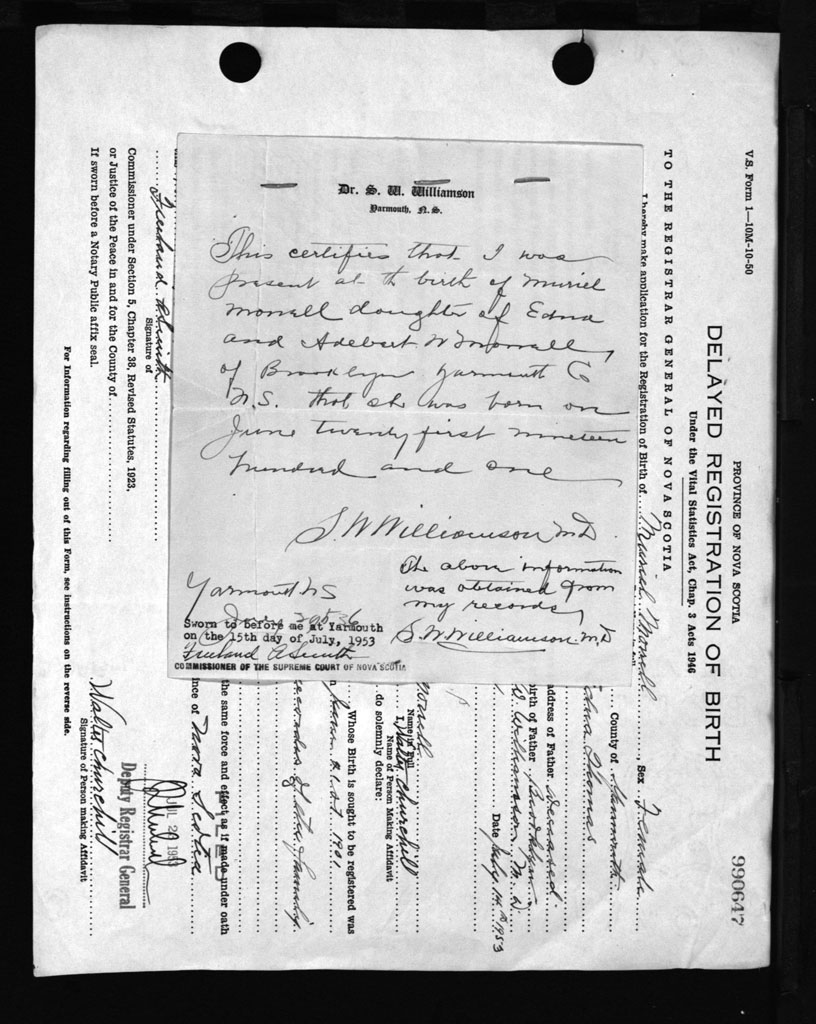 Dr. S. W. Williamson
Yarmouth, N. S.
This certifies that I was
present at th birth of Muriel
Morrell daughter of Edna
and Adelbert W Morrell,
of Brooklyn Yarmouth Co
N. S. that she was born on
June twenty first nineteen
hundred and one
S. W Williamson M D
Yarmouth N S
The above information
was obtained from
my records,
S. W Williamson. M. D
Sworn to before me at Yarmouth
on the 15th day of July, 1953
Freeland A Smith
COMMISSIONER OF THE SUPREME COURT OF NOVA SCOTIA
V.S. Form 1—10M-10-50
PROVINCE OF NOVA SCOTIA
DELAYED REGISTRATION OF BIRTH
Under the Vital Statistics Act, Chap. 3 Acts 1946
990647
TO THE REGISTRAR GENERAL OF NOVA SCOTIA
I hereby make application for the Registration of Birth of Muriel Morrell Sex Female
County of Yarmouth
Edna Thomas
address of Father Deceased
irth of Father Brooklyn
W. Williamson M. D.
Date July 14th 1953
Name in Full
Name of Person Making Affidavit
I, Walter Churchill
do solemnly declare:
Whose Birth is sought to be registered was
June 21st 1901
records of the family
the same force and effect as if made under oath
nce of Nova Scotia
Freeland A Smith
Signature of
Commissioner under Section 5, Chapter 38, Revised Statutes, 1923,
or Justice of the Peace in and for the County of
If sworn before a Notary Public affix seal.
JUL 20 195
Deputy Registrar General
Walter Churchill
Signature of Person making Affidavit
For Information regarding filling out of this Form, see instructions on the reverse side.